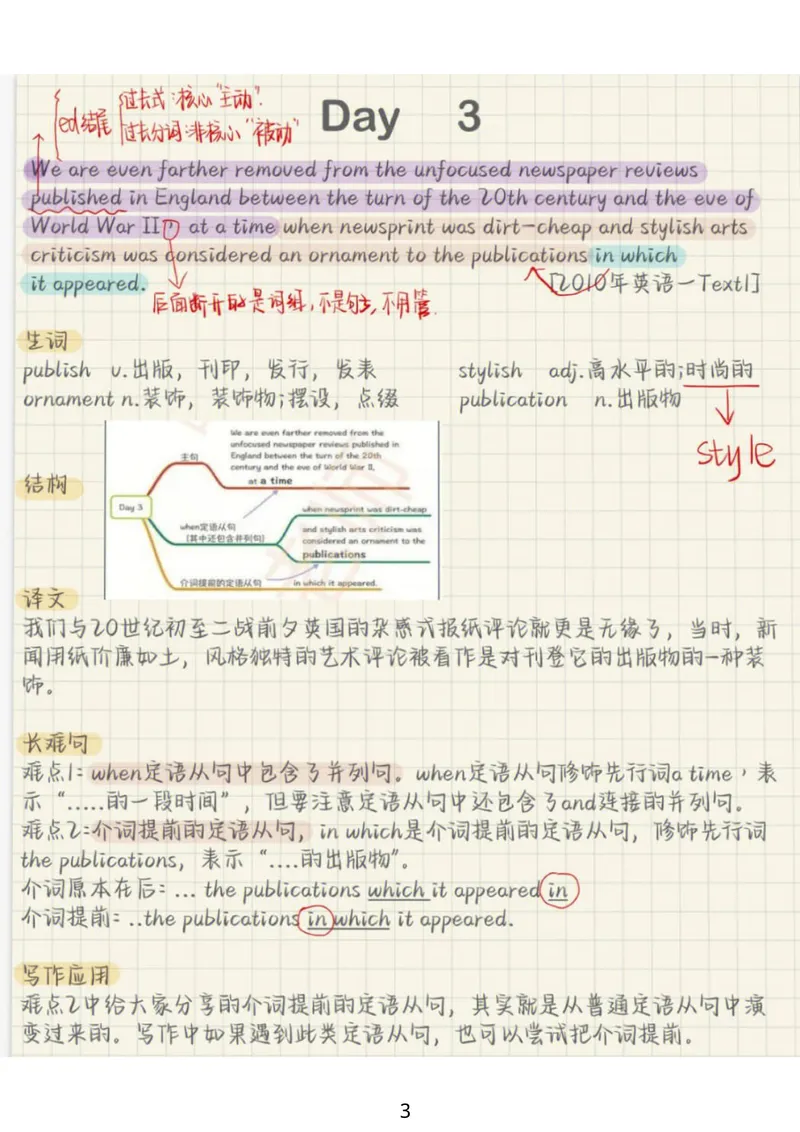 过去式:核心"主动".
ed结尾
过去分词:非核心"被动"
Day 3
We are even farther removed from the unfocused newspaper reviews
published in England between the turn of the 20th century and the eve of
World War II, at a time when newsprint was dirt-cheap and stylish arts
criticism was considered an ornament to the publications in which
it appeared.
[2010年英语一Text1]
后面断开的是词组,不是句子,不用管.
生词
publish v.出版，刊印，发行，发表
stylish adj.高水平的;时尚的
ornament n.装饰，装饰物;摆设，点缀
publication n.出版物
style
结构
Day 3
主句
We are even farther removed from the
unfocused newspaper reviews published in
England between the turn of the 20th
century and the eve of World War II,
at a time
when定语从句
(其中还包含并列句)
when newsprint was dirt-cheap
and stylish arts criticism was
considered an ornament to the
publications
介词提前的定语从句
in which it appeared.
译文
我们与20世纪初至二战前夕英国的杂感式报纸评论就更是无缘了，当时，新
闻用纸价廉如土，风格独特的艺术评论被看作是对刊登它的出版物的一种装
饰。
长难句
难点1: when定语从句中包含了并列句。when定语从句修饰先行词a time，表
示“.....的一段时间”，但要注意定语从句中还包含了and连接的并列句。
难点2:介词提前的定语从句，in which是介词提前的定语从句，修饰先行词
the publications，表示“....的出版物”。
介词原本在后: ... the publications which it appeared in
介词提前: ..the publications in which it appeared.
写作应用
难点2中给大家分享的介词提前的定语从句，其实就是从普通定语从句中演
变过来的。写作中如果遇到此类定语从句，也可以尝试把介词提前。
3